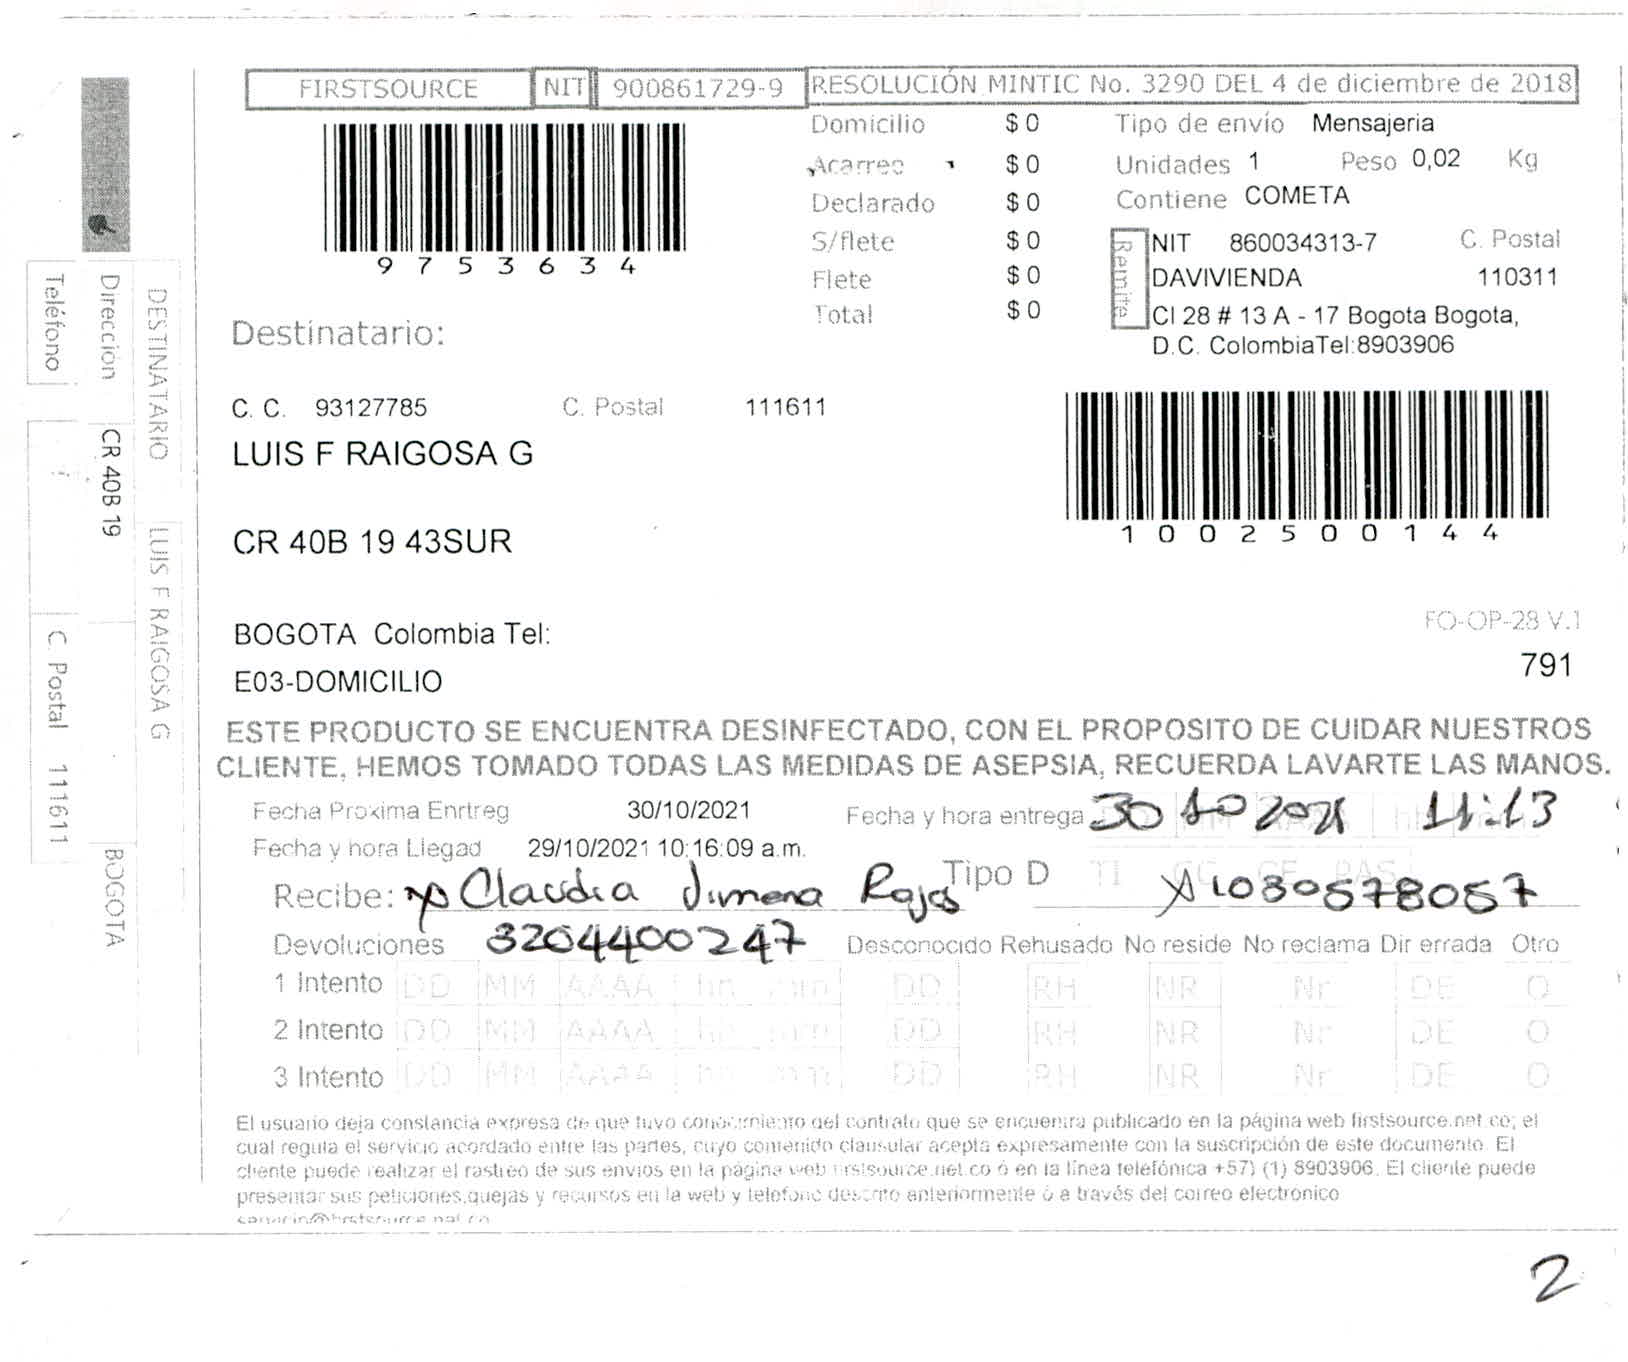 FIRSTSOURCE NIT 900861729-9 RESOLUCIÓN MINTIC No. 3290 DEL 4 de diciembre de 2018
9 7 5 3 6 3 4
Domicilio $ 0
Acarreo $ 0
Declarado $ 0
S/flete $ 0
Flete $ 0
Total $ 0
Tipo de envío Mensajeria
Unidades 1 Peso 0,02 Kg
Contiene COMETA
Remite
NIT 860034313-7 C. Postal
DAVIVIENDA 110311
Cl 28 # 13 A - 17 Bogota Bogota,
D.C. ColombiaTel:8903906
Destinatario:
C. C. 93127785 C. Postal 111611
LUIS F RAIGOSA G
CR 40B 19 43SUR
1 0 0 2 5 0 0 1 4 4
BOGOTA Colombia Tel:
E03-DOMICILIO
FO-OP-28 V.1
791
ESTE PRODUCTO SE ENCUENTRA DESINFECTADO, CON EL PROPOSITO DE CUIDAR NUESTROS
CLIENTE, HEMOS TOMADO TODAS LAS MEDIDAS DE ASEPSIA, RECUERDA LAVARTE LAS MANOS.
Fecha Proxima Enrtreg 30/10/2021 Fecha y hora entrega 30 10 2021 11:13
Fecha y hora Llegad 29/10/2021 10:16:09 a.m.
Tipo D TI CC CE PAS
Recibe: Claudia Jimena Rojas 1030578057
Devoluciones 32044400247 Desconocido Rehusado No reside No reclama Dir errada Otro
1 Intento DD MM AAAA hh mm DD RH NR Nr DE O
2 Intento DD MM AAAA hh mm DD RH NR Nr DE O
3 Intento DD MM AAAA hh mm DD RH NR Nr DE O
El usuario deja constancia expresa de que tuvo conocimiento del contrato que se encuentra publicado en la página web firstsource.net co; el
cual regula el servicio acordado entre las partes, cuyo contenido clausular acepta expresamente con la suscripción de este documento. El
cliente puede realizar el rastreo de sus envios en la página web firstsource.net.co ó en la línea telefónica +57) (1) 8903906. El cliente puede
presentar sus peticiones,quejas y recursos en la web y telefono descrito anteriormente ó a través del correo electronico
servicio@firstsource.net.co
2
DESTINATARIO LUIS F RAIGOSA G
Dirección CR 40B 19 BOGOTA
Teléfono C. Postal 111611